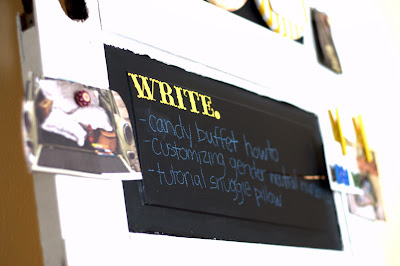 WRITE.
-candy buffet how to
-customizing gender neutral
-tutorial snuggle pillow